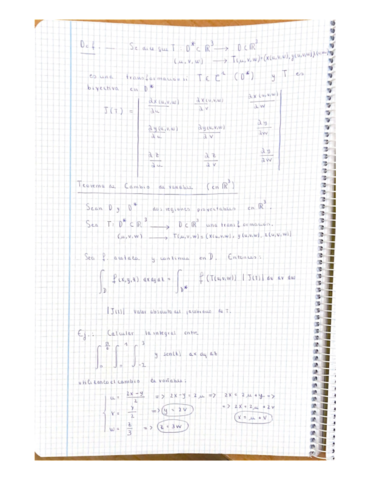 Def... Se dice que T: D* ⊂ ℝ³ → D ⊂ ℝ³
(u,v,w) → T(u,v,w) = (x(u,v,w), y(u,v,w), z(u,v,w))
es una transformación si T ∈ C¹ (D*) y T es
biyectiva en D*
J(T) = | ∂x(u,v,w)/∂u ∂x(u,v,w)/∂v ∂x(u,v,w)/∂w |
| ∂y(u,v,w)/∂u ∂y(u,v,w)/∂v ∂y/∂w |
| ∂z/∂u ∂z/∂v ∂z/∂w |
Teorema de Cambio de variable (en ℝ³)
Sean D y D* dos regiones en ℝ³.
Sea T: D* ⊂ ℝ³ → D ⊂ ℝ³ una transformación.
(u,v,w) → T(u,v,w) = (x(u,v,w), y(u,v,w), z(u,v,w))
Sea f acotada y continua en D. Entonces:
∫_D f(x,y,z) dx dy dz = ∫_D* f(T(u,v,w)) |J(T)| du dv dw
|J(T)| valor absoluto del jacobiano de T.
Ej... Calcular la integral
utilizando el cambio de variable:
u = (2x-y)/2 => 2x-y = 2u => 2x = 2u+y =>
v = y/2 => y = 2v => 2x = 2u+2v
x = u+v
w = z/3 => z = 3w